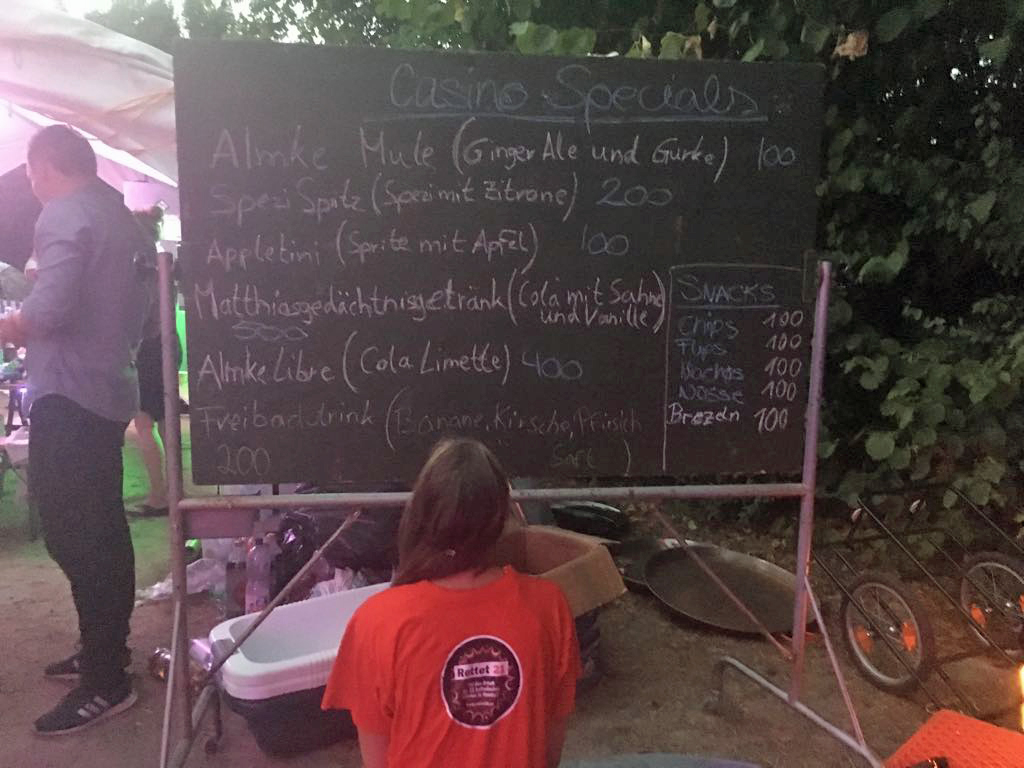 Casino Specials
Almke Mule (Ginger Ale und Gurke) 100
Spezi Spritz (Spezi mit Zitrone) 200
Appletini (Sprite mit Apfel) 100
Matthiasgedächtnisgetränk (Cola mit Sahne
und Vanille)
500
Almke Libre (Cola Limette) 400
Freibaddrink (Banane, Kirsche, Pfirsich
200 Saft )
SNACKS
Chips 100
Flips 100
Nachos 100
Nüsse 100
Brezeln 100
Rettet 21